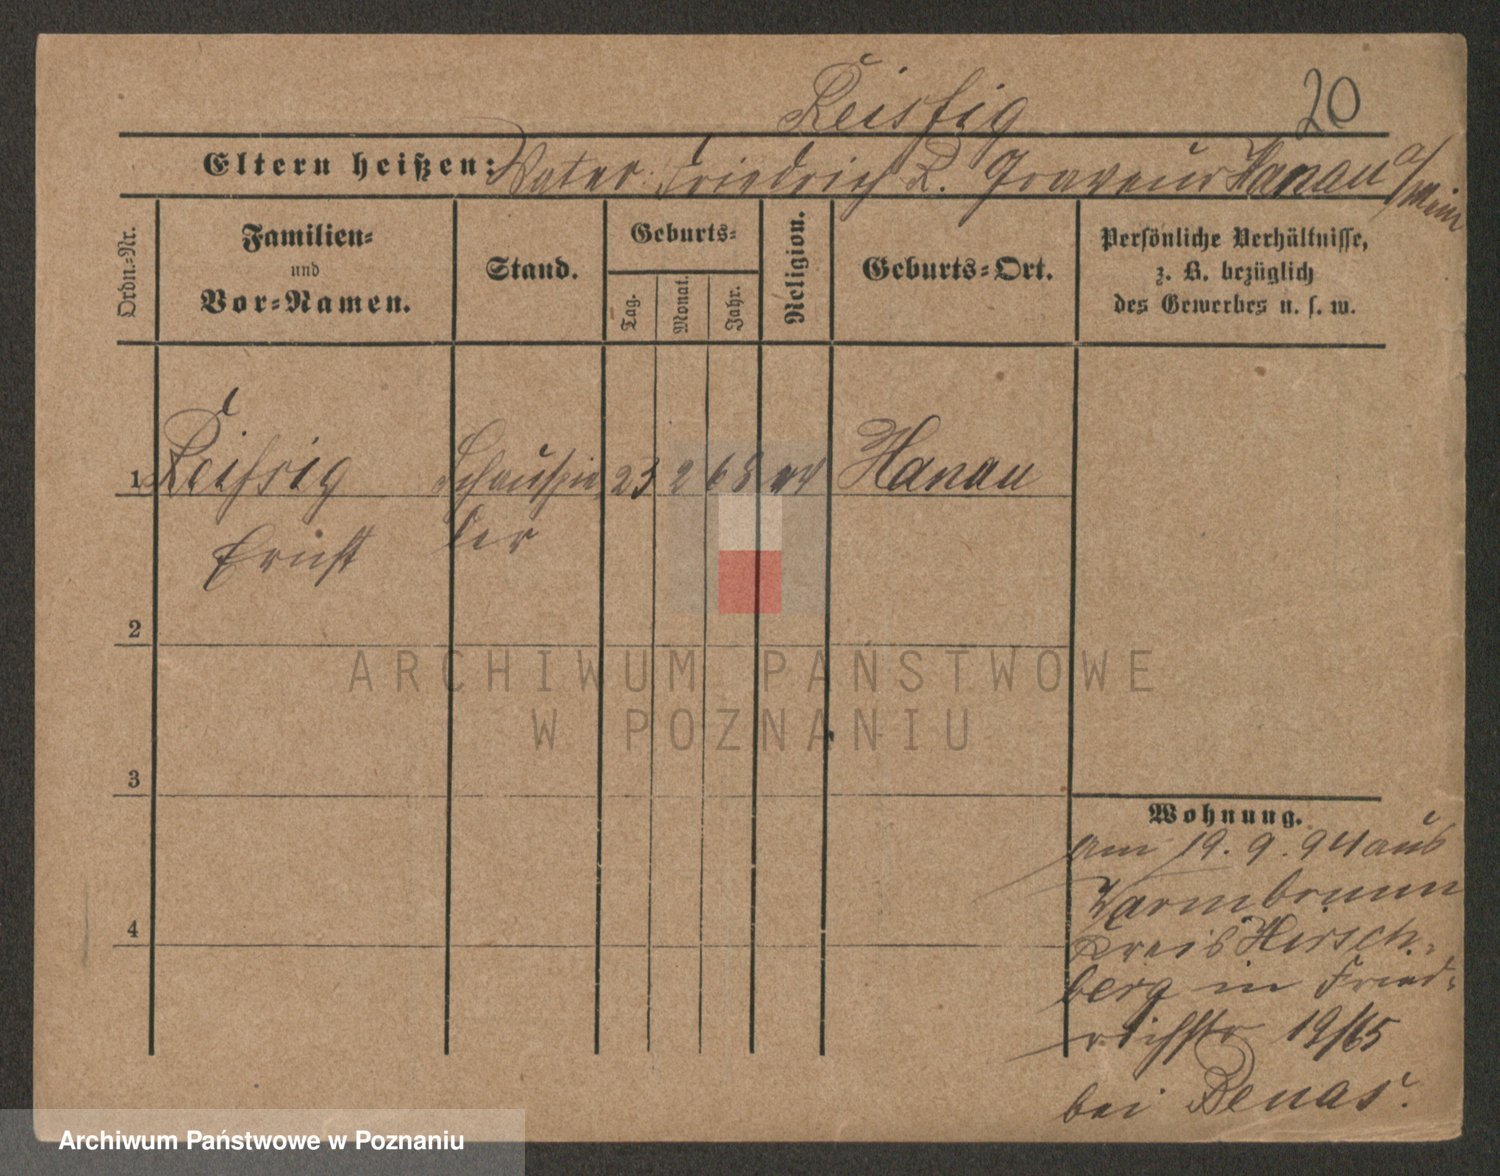 Reissig 20
Eltern heißen: Vater: Friedrich R. Graveur Hanau a/Main
Ordn.-Nr.
Familien-
und
Vor-Namen.
Stand.
Geburts-
Tag.
Monat.
Jahr.
Religion.
Geburts-Ort.
Persönliche Verhältnisse,
z. B. bezüglich
des Gewerbes u. s. w.
1 Reissig Schauspie 23 2 68 Hanau
Ernst ler
2
3
4
Wohnung.
Am 19. 9. 94 aus
Warmbrunn
Kreis Hirsch-
berg in Fried-
richstr 19/65
bei Benas.
ARCHIWUM PAŃSTWOWE
W POZNANIU
Archiwum Państwowe w Poznaniu